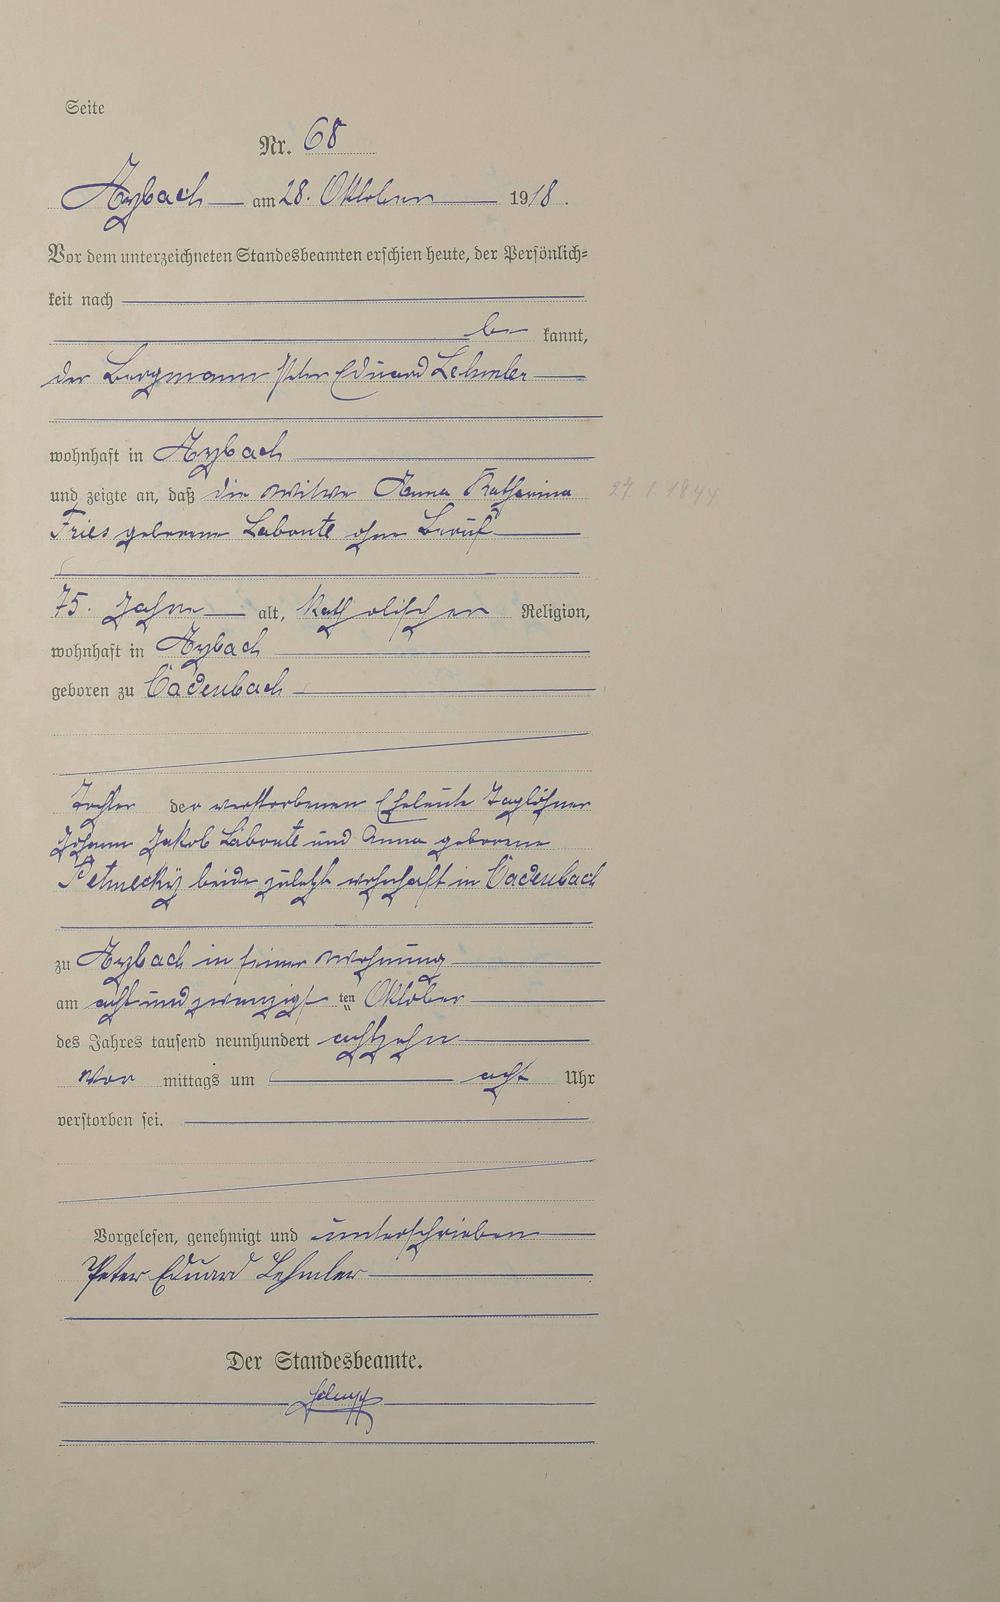 Seite
Nr. 68
Arzbach am 28. Oktober 1918.
Vor dem unterzeichneten Standesbeamten erschien heute, der Persönlich=
keit nach
be kannt,
der Bergmann Peter Eduard Lehmler
wohnhaft in Arzbach
und zeigte an, daß die Witwe Anna Katharina 27. 1. 1844
Fries geborene Labonte ohne Beruf
75. Jahre alt, katholischer Religion,
wohnhaft in Arzbach
geboren zu Cadenbach
Tochter der verstorbenen Eheleute Taglöhner
Johann Jakob Labonte und Anna geborene
beide zuletzt wohnhaft in Cadenbach
zu Arzbach in seiner Wohnung
am acht und zwanzigsten Oktober
des Jahres tausend neunhundert achtzehn
Vor mittags um acht Uhr
verstorben sei.
Vorgelesen, genehmigt und unterschrieben
Peter Eduard Lehmler
Der Standesbeamte.